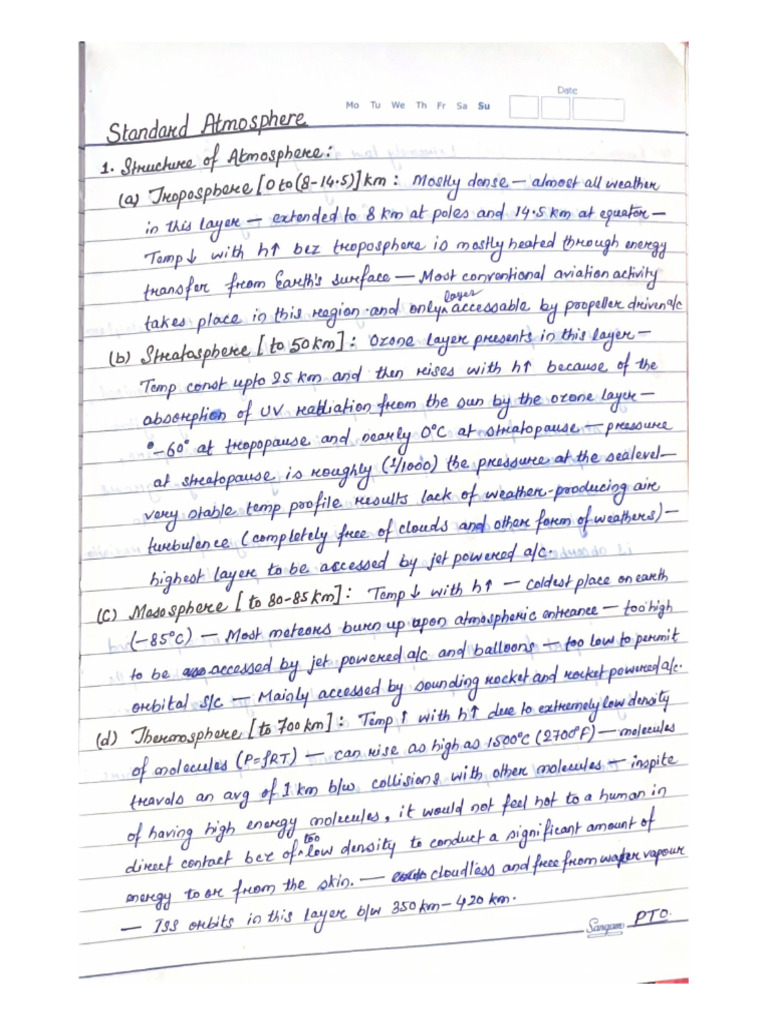 Date
Mo Tu We Th Fr Sa Su
Standard Atmosphere
1. Structure of Atmosphere:
(a) Troposphere [0 to (8-14.5)] km: Mostly dense — almost all weather
in this layer — extended to 8 km at poles and 14.5 km at equator —
Temp ↓ with h↑ bcz troposphere is mostly heated through energy
transfer from Earth's surface — Most conventional aviation activity
takes place in this region and only layer accessable by propeller driven a/c
(b) Stratosphere [to 50 km]: Ozone layer presents in this layer —
Temp const upto 25 km and then rises with h↑ because of the
absorption of UV radiation from the sun by the ozone layer —
-60° at tropopause and nearly 0°C at stratopause — pressure
at stratopause is roughly (1/1000) the pressure at the sealevel —
very stable temp profile results lack of weather-producing air
turbulence (completely free of clouds and other form of weathers) —
highest layer to be accessed by jet powered a/c.
(C) Mesosphere [to 80-85 km]: Temp ↓ with h↑ — coldest place on earth
(-85°C) — Most meteors burn up upon atmospheric entrance — too high
to be accessed by jet powered a/c and balloons — too low to permit
orbital s/c — Mainly accessed by sounding rocket and rocket powered a/c.
(d) Thermosphere [to 700 km]: Temp ↑ with h↑ due to extremely low density
of molecules (P=ρRT) — can rise as high as 1500°C (2700°F) — molecules
travels an avg of 1 km b/w collisions with other molecules — inspite
of having high energy molecules, it would not feel hot to a human in
direct contact bcz of too low density to conduct a significant amount of
energy to or from the skin. — cloudless and free from water vapour
— ISS orbits in this layer b/w 350 km - 420 km.
Sangam PTO.